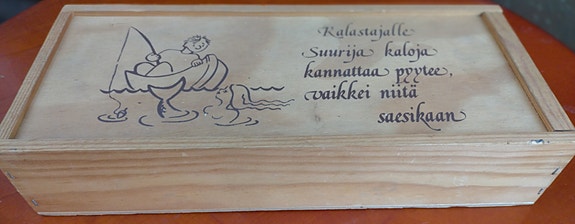 Kalastajalle
Suurija kaloja
kannattaa pyytee,
vaikkei niitä
saesikaan